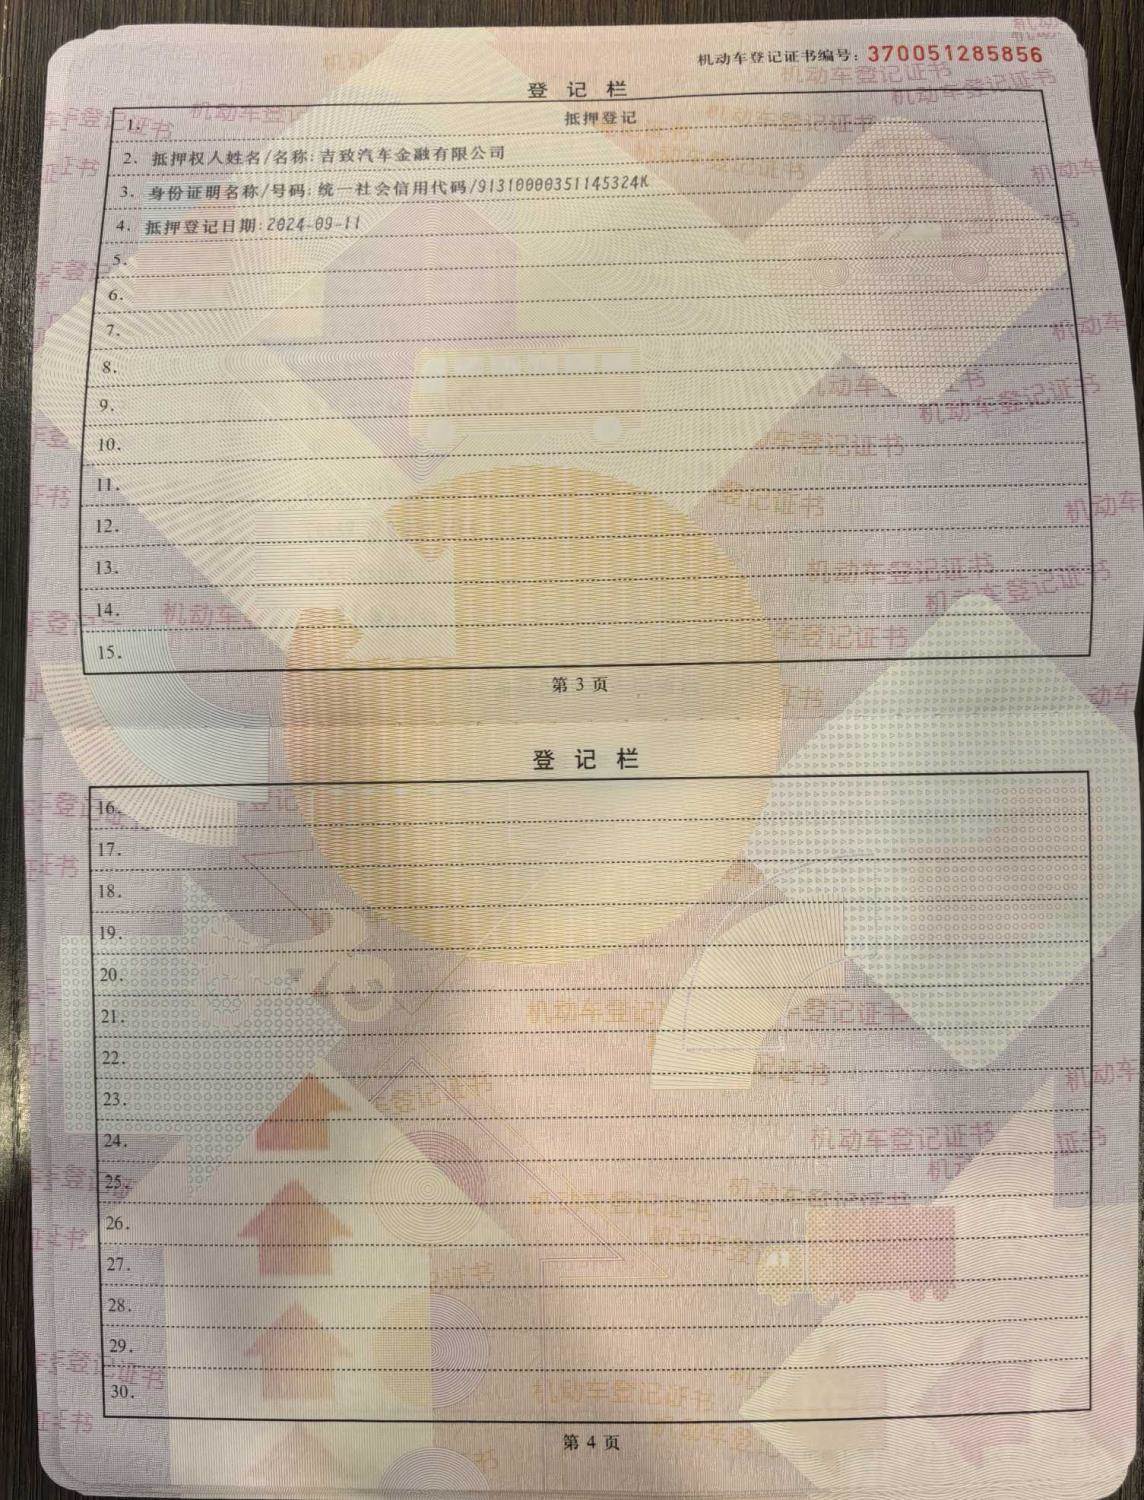 机动车登记证书编号：370051285856
登 记 栏
1. 抵押登记
2. 抵押权人姓名/名称:吉致汽车金融有限公司
3. 身份证明名称/号码:统一社会信用代码/91310000351145324K
4. 抵押登记日期:2024-09-11
5.
6.
7.
8.
9.
10.
11.
12.
13.
14.
15.
第 3 页
登 记 栏
16.
17.
18.
19.
20.
21.
22.
23.
24.
25.
26.
27.
28.
29.
30.
第 4 页